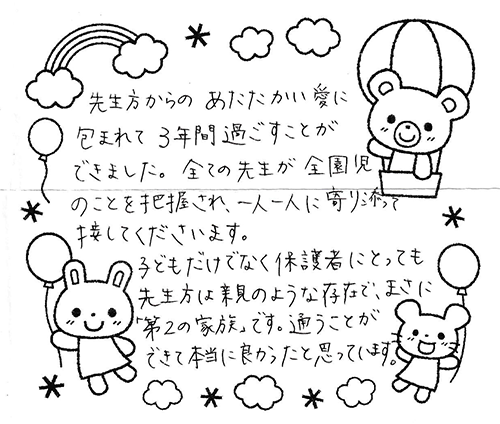 先生方からの あたたかい愛に
包まれて 3年間過ごすことが
できました。全ての先生が 全園児
のことを把握され、一人一人に寄り添って
接してくださいます。
子どもだけでなく保護者にとっても
先生方は親のような存在で、まさに
「第2の家族」です。通うことが
できて本当に良かったと思っています。